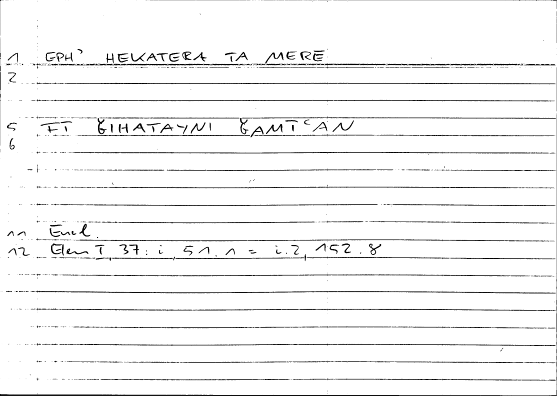 1 EPH' HEKATERA TA MERE
2
5 FĪ ǦIHATAYNI ǦAMĪʿAN
6
11 Eucl.
12 Elem I, 37: i, 51.1 = i.2, 152.8